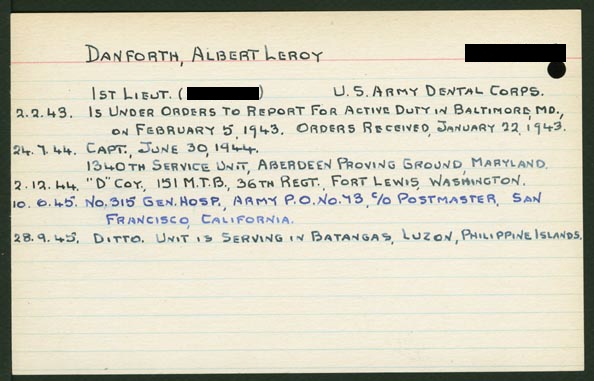 DANFORTH, ALBERT LEROY
1ST LIEUT. ( ) U.S. ARMY DENTAL CORPS.
2.2.43. IS UNDER ORDERS TO REPORT FOR ACTIVE DUTY IN BALTIMORE, MD.,
ON FEBRUARY 5, 1943. ORDERS RECEIVED, JANUARY 22, 1943.
24.7.44. CAPT., JUNE 30, 1944.
1340TH SERVICE UNIT, ABERDEEN PROVING GROUND, MARYLAND.
2.12.44. "D" COY., 151 M.T.B., 36TH REGT., FORT LEWIS, WASHINGTON.
10.6.45. NO. 315 GEN. HOSP., ARMY P.O. NO. 73, C/O POSTMASTER, SAN
FRANCISCO, CALIFORNIA.
28.9.45. DITTO. UNIT IS SERVING IN BATANGAS, LUZON, PHILIPPINE ISLANDS.